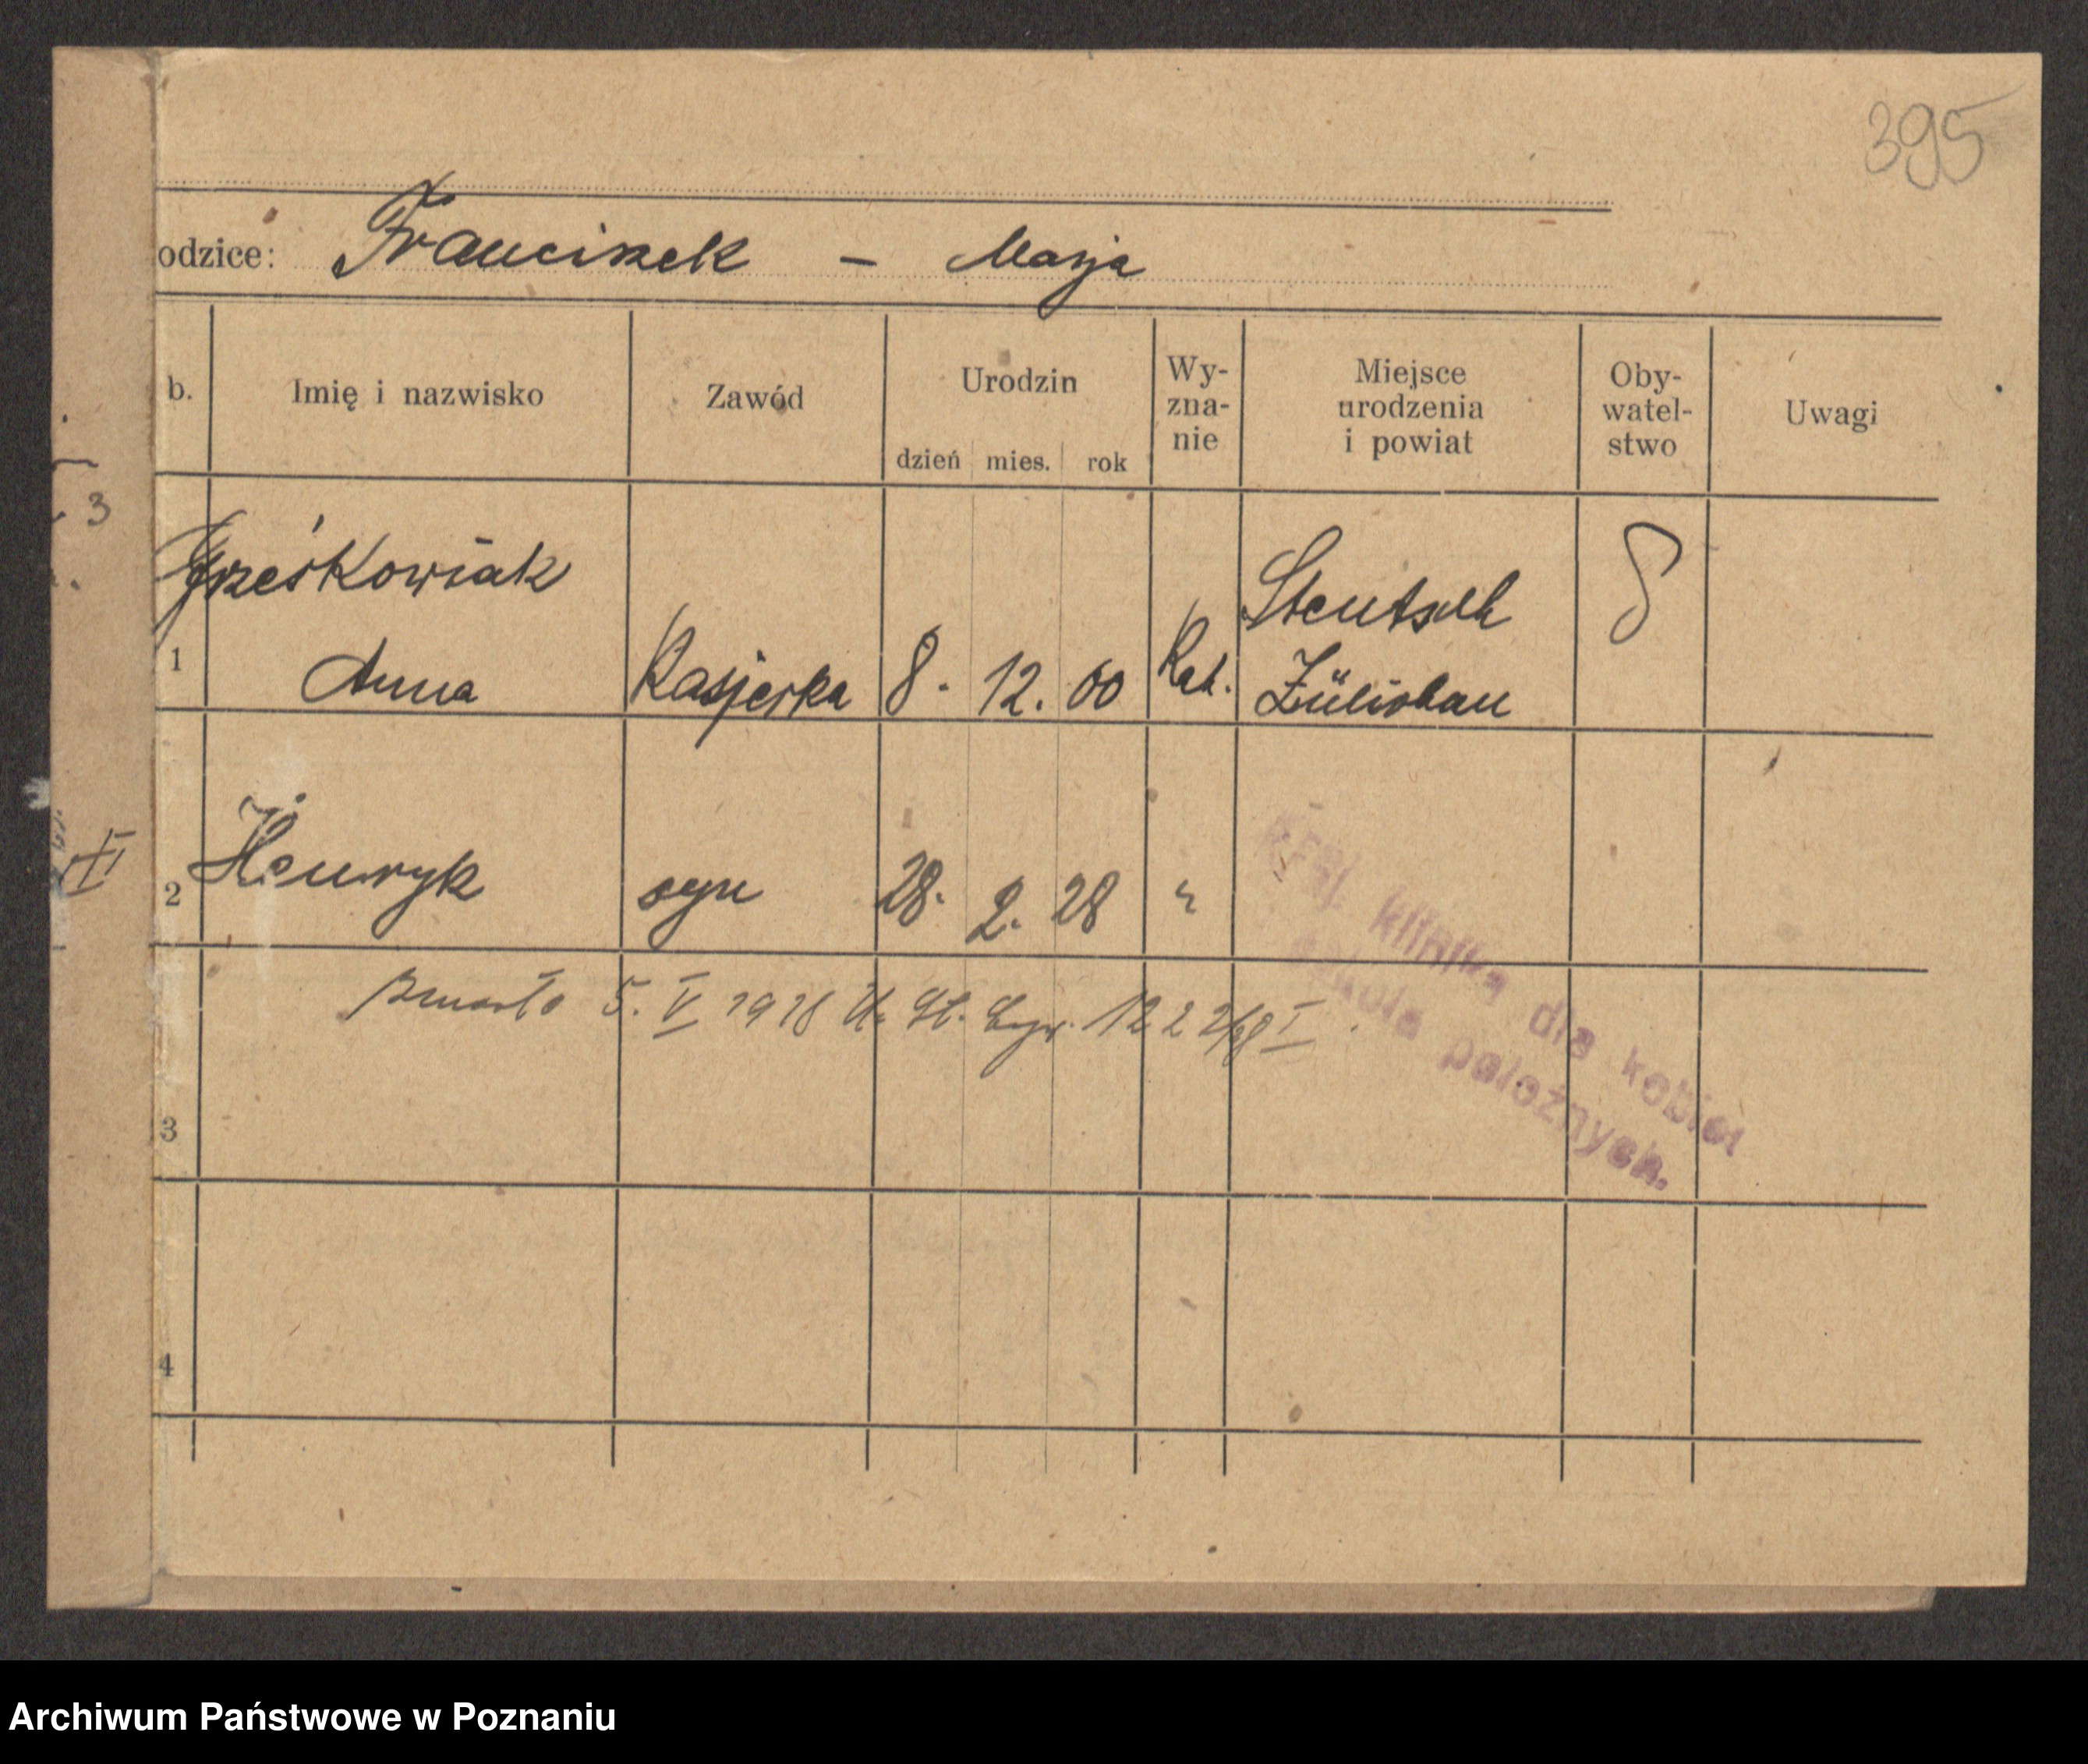 395
odzice: Franciszek – Marja
b. Imię i nazwisko Zawód Urodzin dzień mies. rok Wy-zna-nie Miejsce urodzenia i powiat Oby-watel-stwo Uwagi
3
Grześkowiak Steutsch
1 Anna Kasjerka 8. 12. 00 Kat. Züllichau
VI
2 Henryk syn 28. 2. 28 "
zmarło 5. V 1928 U. St. 1222/28 I
Kraj. klinika dla kobiet
szkoła położnych.
3
4
Archiwum Państwowe w Poznaniu